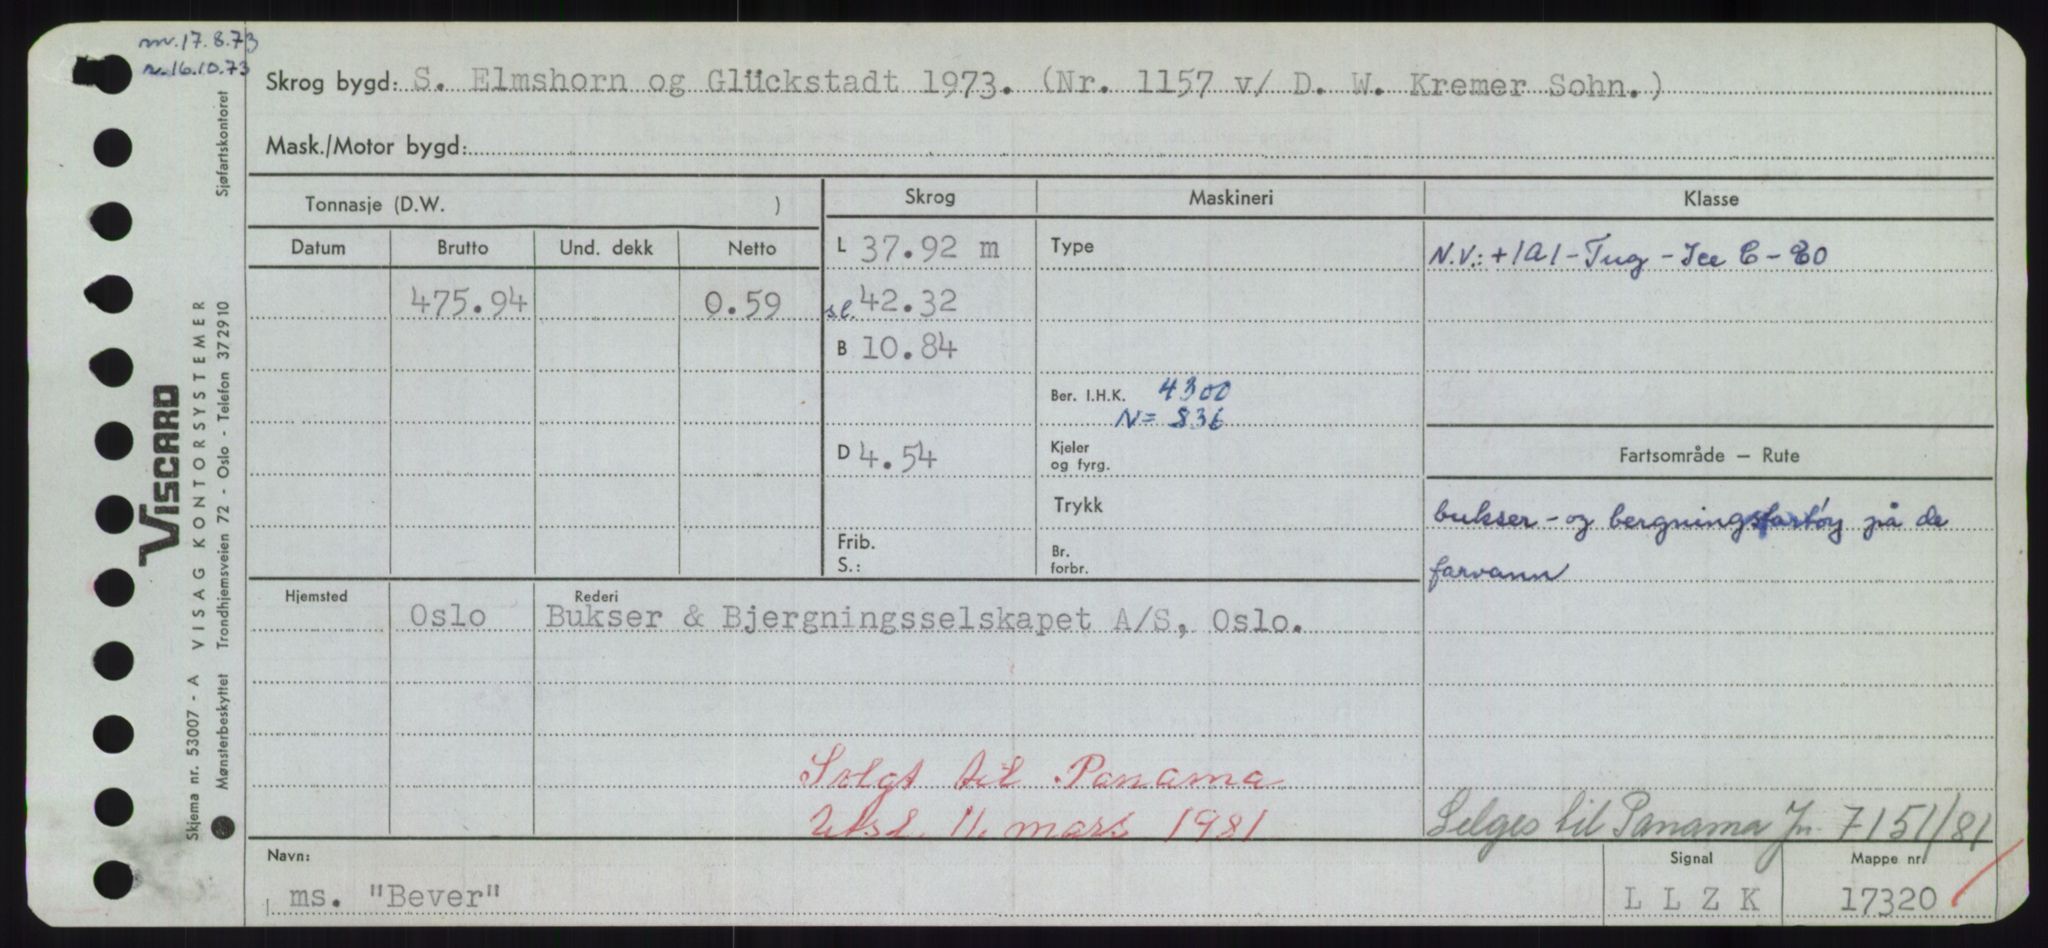 m.17.8.73
n.16.10.73
Skrog bygd: S. Elmshorn og Glückstadt 1973. (Nr. 1157 v/ D. W. Kremer Sohn.)
Mask./Motor bygd:
Tonnasje (D.W. )
Skrog
Maskineri
Klasse
Datum
Brutto
Und. dekk
Netto
L 37.92 m
Type
N.V.: +1A1-Tug-Ice C-E0
475.94
0.59
sl. 42.32
B 10.84
Ber. I.H.K. 4300
N= 836
D 4.54
Kjeler
og fyrg.
Fartsområde — Rute
Trykk
bukser-og bergningsfartøy på de
Frib.
S.:
Br.
forbr.
farvann
Hjemsted
Rederi
Oslo
Bukser & Bjergningsselskapet A/S, Oslo.
Solgt til Panama
Utsl. 11. mars 1981
Selges til Panama Jn. 7151/81
Navn:
Signal
Mappe nr.
ms. "Bever"
L L Z K
17320
VISCARD
Skjema nr. 53007 - A VISAG KONTORSYSTEMER
Mønsterbeskyttet Trondhjemsveien 72 - Oslo - Telefon 372910 Sjøfartskontoret